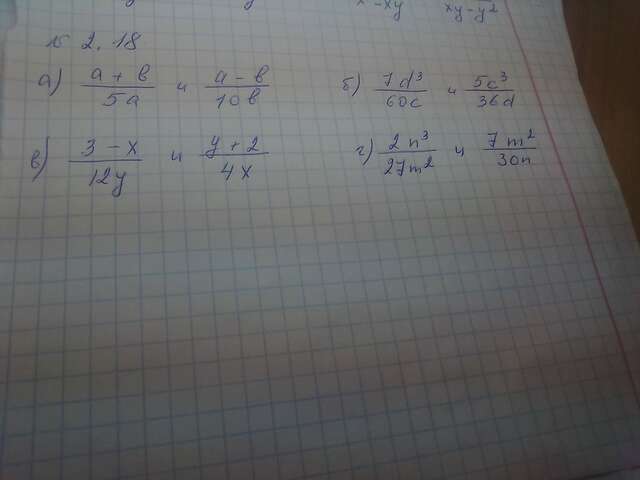 x - xy xy - y²
№ 2.18
а) (a + b)/(5a) и (a - b)/(10b) б) (7d³)/(60c) и (5c³)/(36d)
в) (3 - x)/(12y) и (y + 2)/(4x) г) (2n³)/(27m²) и (7m²)/(30n)